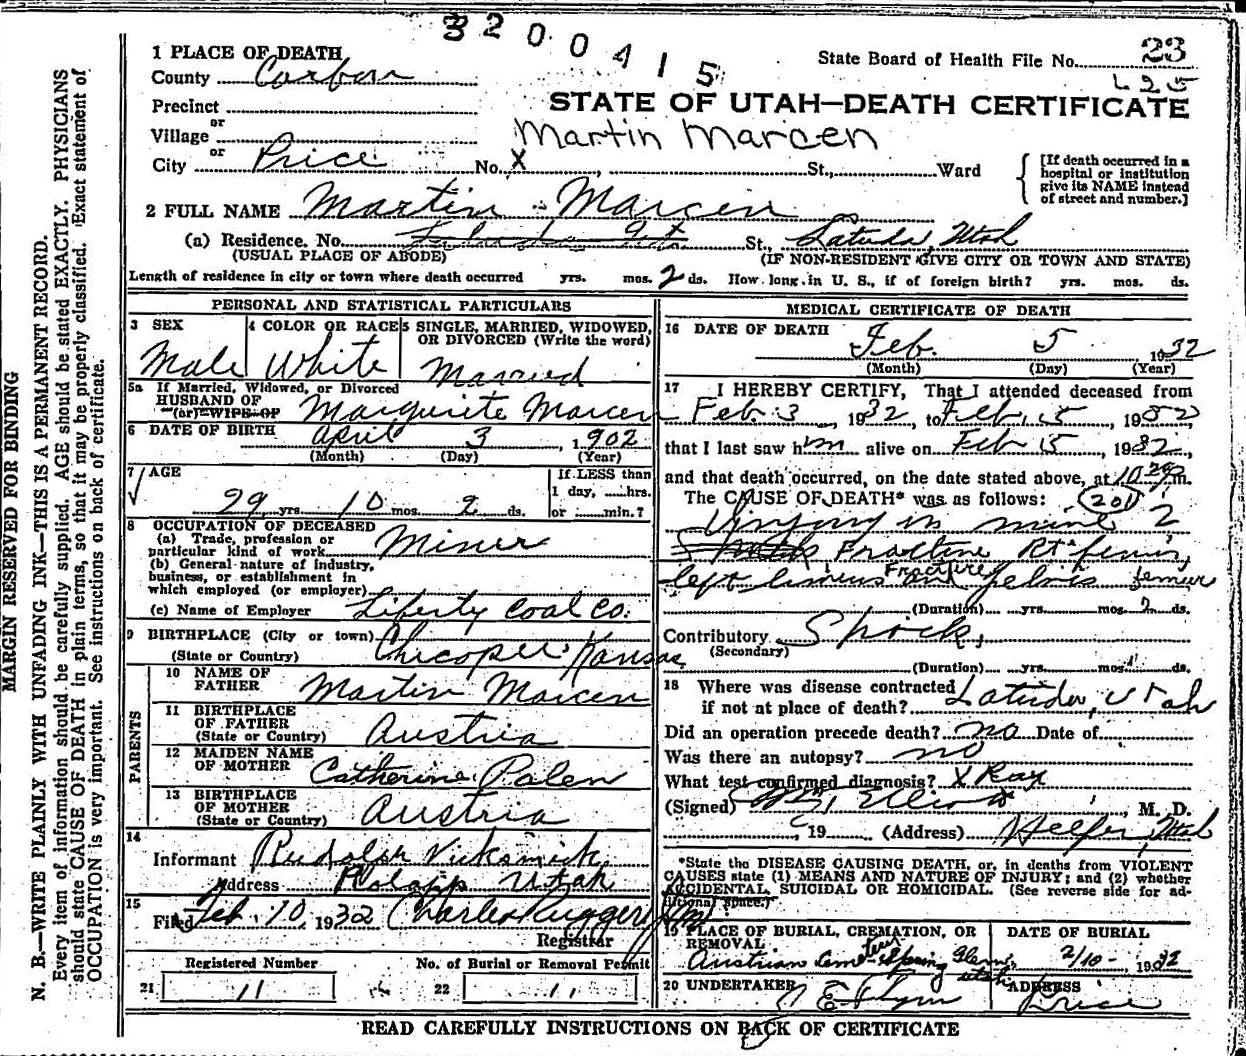 3200415
State Board of Health File No. 23
L 25
1 PLACE OF DEATH
County Carbon
STATE OF UTAH—DEATH CERTIFICATE
Precinct
or
Village
Martin Marcen
or
City Price No. X St., Ward
[If death occurred in a hospital or institution give its NAME instead of street and number.]
2 FULL NAME Martin Marcen
(a) Residence. No. St., Latuda, Utah
(USUAL PLACE OF ABODE) (IF NON-RESIDENT GIVE CITY OR TOWN AND STATE)
Length of residence in city or town where death occurred yrs. mos. 2 ds. How long in U. S., if of foreign birth? yrs. mos. ds.
PERSONAL AND STATISTICAL PARTICULARS
3 SEX
Male
4 COLOR OR RACE
White
5 SINGLE, MARRIED, WIDOWED, OR DIVORCED (Write the word)
Married
5a If Married, Widowed, or Divorced
HUSBAND OF
(or) WIFE OF Marguerite Marcen
6 DATE OF BIRTH April 3 1902
(Month) (Day) (Year)
7 AGE
29 yrs. 10 mos. 2 ds.
If LESS than
1 day, hrs.
or min.?
8 OCCUPATION OF DECEASED
(a) Trade, profession or
particular kind of work Miner
(b) General nature of industry,
business, or establishment in
which employed (or employer)
(c) Name of Employer Liberty Coal Co.
9 BIRTHPLACE (City or town) Chicopee Kansas
(State or Country)
PARENTS
10 NAME OF
FATHER Martin Marcen
11 BIRTHPLACE
OF FATHER
(State or Country) Austria
12 MAIDEN NAME
OF MOTHER Catherine Palen
13 BIRTHPLACE
OF MOTHER
(State or Country) Austria
14
Informant Rudolph
Address Rolapp Utah
15
Filed Feb. 10, 1932 Charles Ruggeri
Registrar
Registered Number No. of Burial or Removal Permit
21 11 22 11
MEDICAL CERTIFICATE OF DEATH
16 DATE OF DEATH
Feb. 5, 1932
(Month) (Day) (Year)
17 I HEREBY CERTIFY, That I attended deceased from
Feb. 3, 1932, to Feb. 5, 1932
that I last saw him alive on Feb 5, 1932,
and that death occurred, on the date stated above, at 10 m.
The CAUSE OF DEATH* was as follows: 201
Injury in mine 2
Fracture Rt femur,
Fracture
left femur and pelvis femur
(Duration) yrs. mos. 2 ds.
Contributory Shock,
(Secondary)
(Duration) yrs. mos. ds.
18 Where was disease contracted
if not at place of death? Latuda, Utah
Did an operation precede death? no Date of
Was there an autopsy? no
What test confirmed diagnosis? X Ray
(Signed) Elliott, M. D.
, 19 (Address) Helper, Utah
*State the DISEASE CAUSING DEATH, or, in deaths from VIOLENT
CAUSES state (1) MEANS AND NATURE OF INJURY; and (2) whether
ACCIDENTAL, SUICIDAL OR HOMICIDAL. (See reverse side for ad-
ditional space.)
19 PLACE OF BURIAL, CREMATION, OR
REMOVAL
Austrian Cemetery Spring Glen, Utah
DATE OF BURIAL
2/10- 1932
20 UNDERTAKER
J E Flynn
ADDRESS
Price
READ CAREFULLY INSTRUCTIONS ON BACK OF CERTIFICATE
MARGIN RESERVED FOR BINDING
N. B.—WRITE PLAINLY WITH UNFADING INK—THIS IS A PERMANENT RECORD.
Every item of information should be carefully supplied. AGE should be stated EXACTLY. PHYSICIANS
should state CAUSE OF DEATH in plain terms, so that it may be properly classified. Exact statement of
OCCUPATION is very important. See instructions on back of certificate.